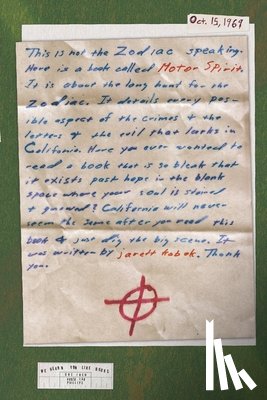 Oct. 15, 1969
This is not the Zodiac speaking.
Here is a book called Motor Spirit.
It is about the long hunt for the
Zodiac. It details every pos-
ible aspect of the crimes & the
letters & the evil that lurks in
California. Have you ever wanted to
read a book that is so bleak that
it exists past hope in the blank
space where your soul is stained
& gnawed? California will never
seem the same after you read this
book & just dig the big scene. It
was written by jarett kobek. Thank
you.
WE HEARD YOU LIKE BOOKS